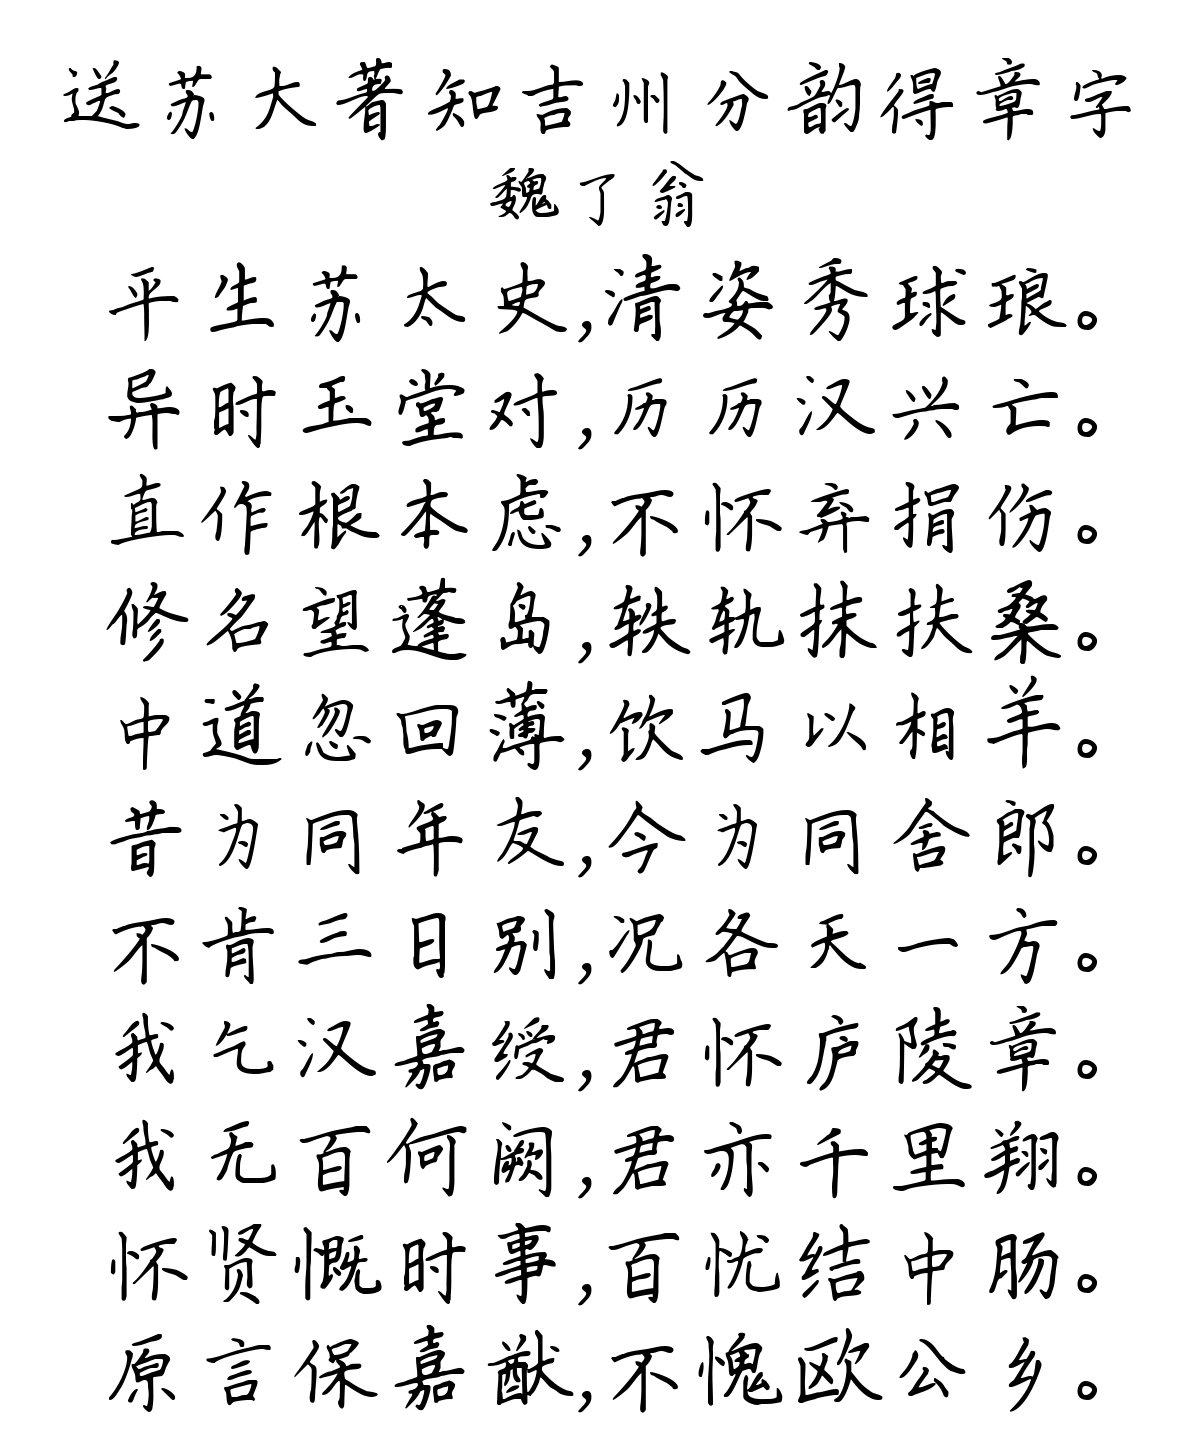 送苏大著知吉州分韵得章字
魏了翁
平生苏太史,清姿秀球琅。
异时玉堂对,历历汉兴亡。
直作根本虑,不怀弃捐伤。
修名望蓬岛,轶轨抹扶桑。
中道忽回薄,饮马以相羊。
昔为同年友,今为同舍郎。
不肯三日别,况各天一方。
我乞汉嘉绶,君怀庐陵章。
我无百何阙,君亦千里翔。
怀贤慨时事,百忧结中肠。
原言保嘉猷,不愧欧公乡。